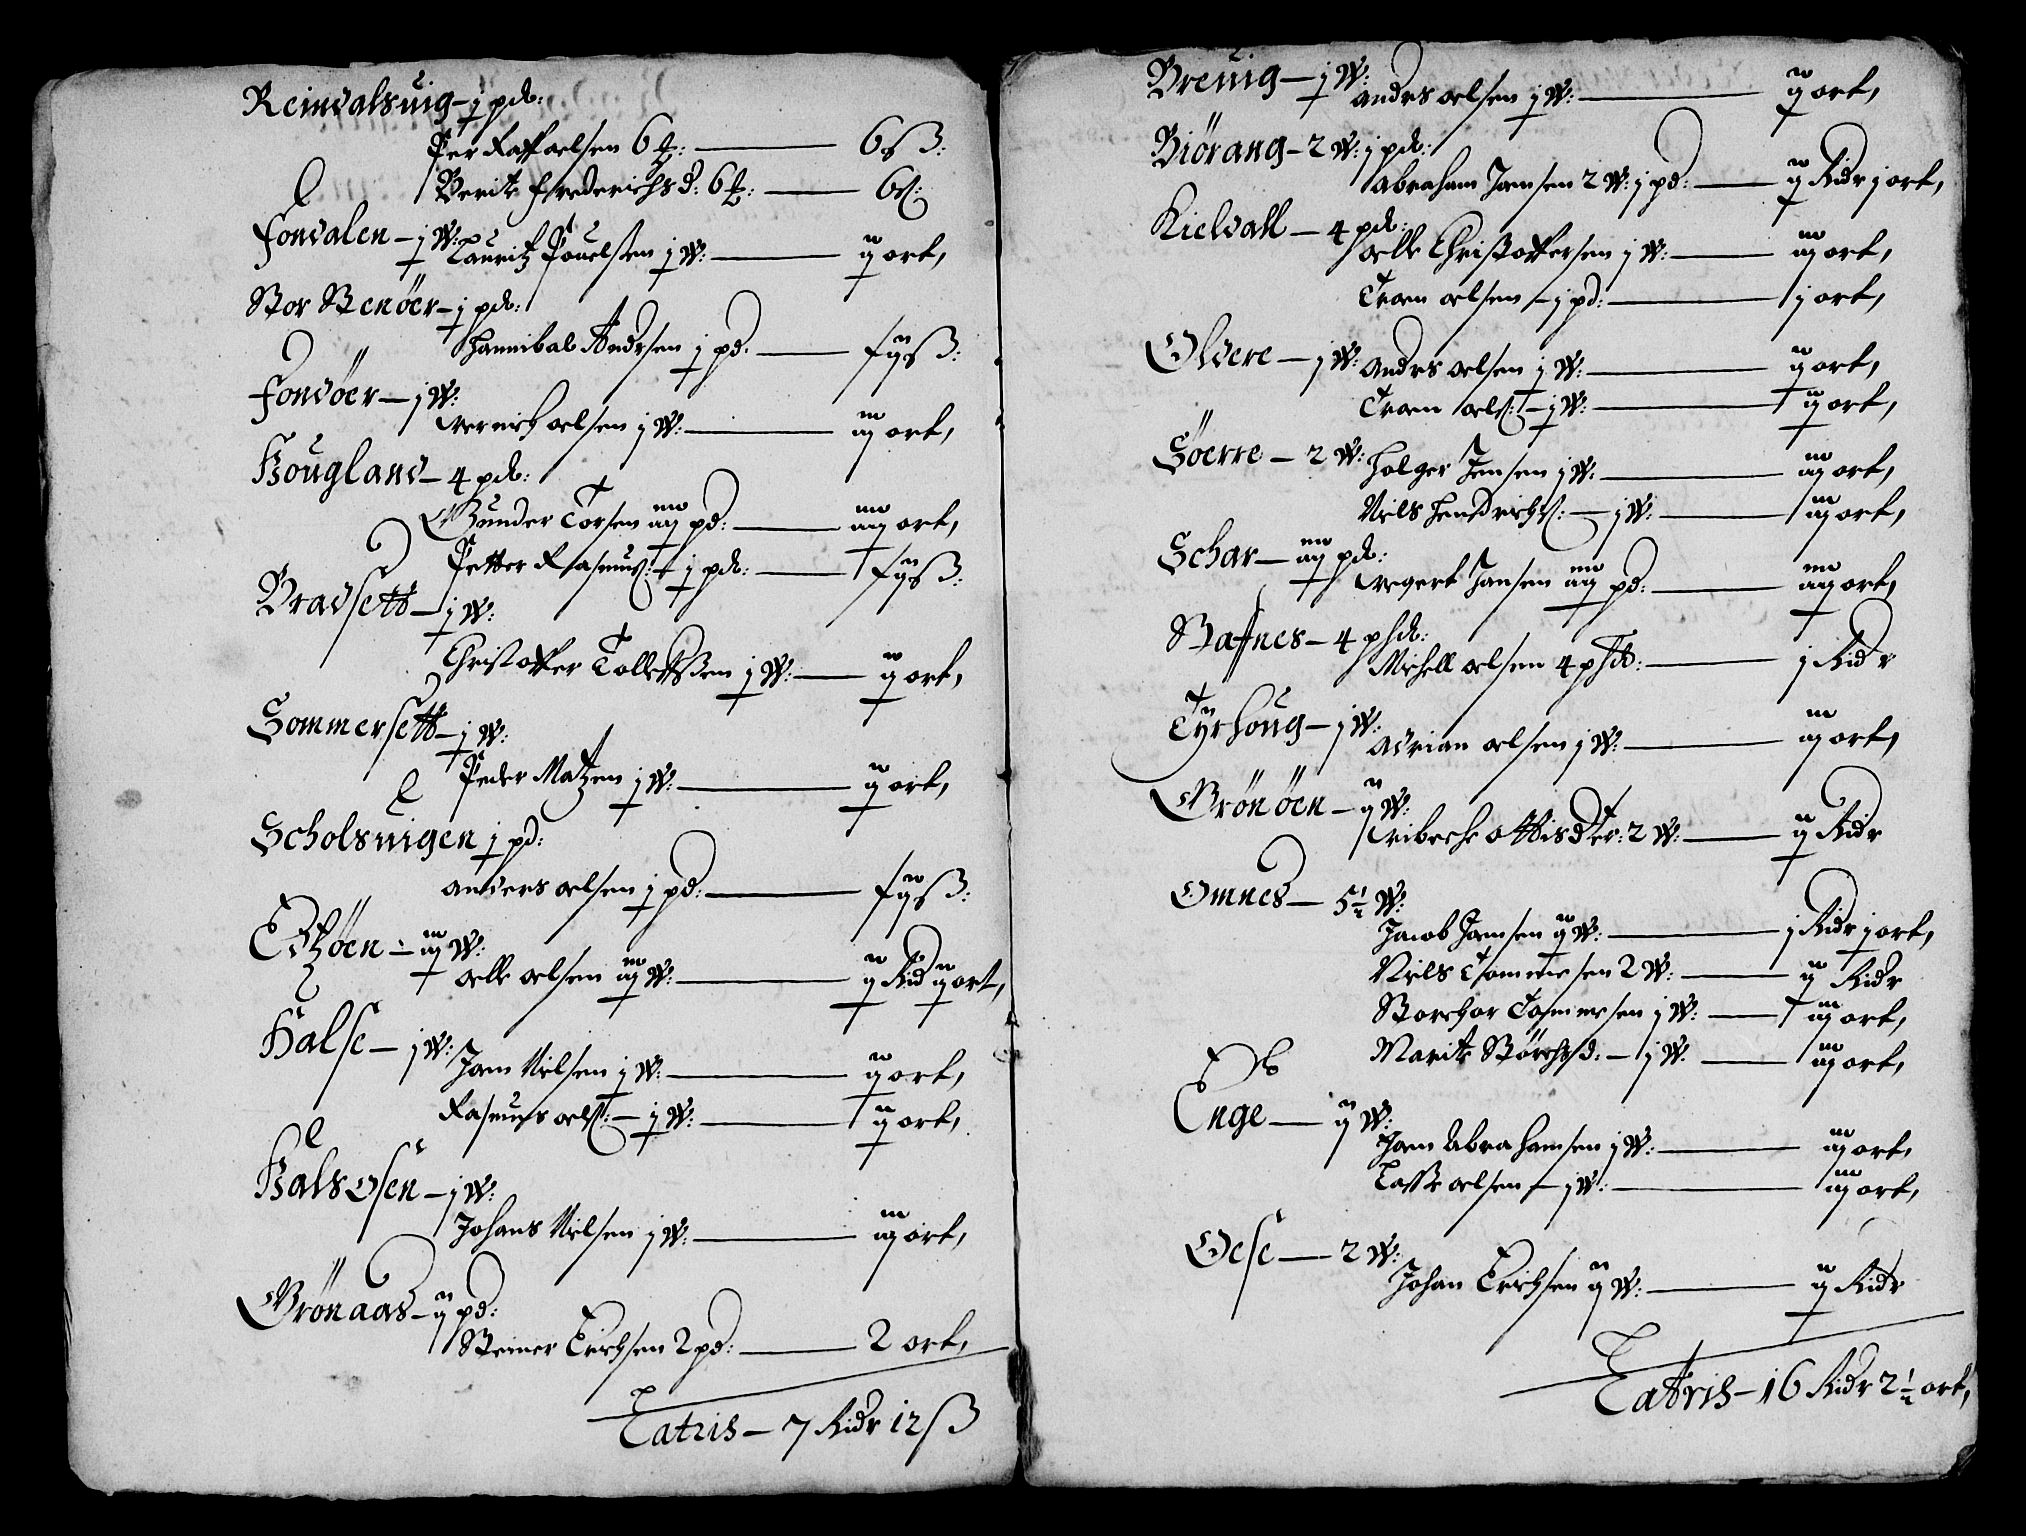 Reindalsuig – j pd:
Per Raffaelsen 6 ₶: — 6 ß:
Berite Frederichsd: 6 ₶: — 6 ß:
Fondalen – j W:
Lauritz Pouelsen j W: — ij ort,
Stor Stenöer – j pd:
Hannibal Andrsen j pd: — ß:
Fondöer – j W:
oelsen j W: — iij ort,
Hougland – 4 pd:
Gunder Torsen iiij pd: — iiij ort,
Petter Rasmuß: – j pd: — ß:
Bradsett – j W:
Christoffer Tollessen j W: — ij ort,
Sommersett – j W:
Peder Matzen j W: — ij ort,
Scholsuigen j pd:
Anders oelsen j pd: — ß:
iij W:
oelle oelsen iij W: — ij Ridr ij ort,
Halse – j W:
Jam Nielsen j W: — ij ort,
Rasmus oelß: – j W: — ij ort,
Halsosen – j W:
Johans Nielsen j W: — iij ort,
Grönaas – ij pd:
Steiner Erichsen 2 pd: — 2 ort,
Latris – 7 Ridr 12 ß
Breuig – j W:
Andrs oelsen j W: — ij ort,
Biörang – 2 W: j pd:
Abraham Jamsen 2 W: j pd: — ij Ridr j ort,
Kieldall – 4 pd:
oelle Christoffersen j W: — iij ort,
Troen oelsen – j pd: — j ort,
Oldere – j W:
Andrs oelsen j W: — ij ort,
Troen oelß: – j W: — ij ort,
Söerre – 2 W:
Holger Jensen j W: — iij ort,
Niels Hendrichß: – j W: — iij ort,
Schar – iiij pd:
Jansen iiij pd: — iiij ort,
Stafnes – 4 pd:
Michell oelsen 4 pd: — j Ridr
Tyrhoug – j W:
Adrian oelsen j W: — iij ort,
Grönöen – ij W:
Vibeche Ottisdter: 2 W: — ij Ridr
Omnes – 5½ W:
Jacob Jamsen ij W: — j Ridr j ort,
Niels Tommesen 2 W: — ij Ridr
Storchor Tommesen j W: — iij ort,
Marite Störchsd: – j W: — iij ort,
Enge – ij W:
Jam Abrahamsen j W: — iij ort,
Lasse oelsen – j W: — iij ort,
Oese – 2 W:
Johan Erichsen ij W: — ij Ridr
Latris – 16 Ridr 2½ ort,